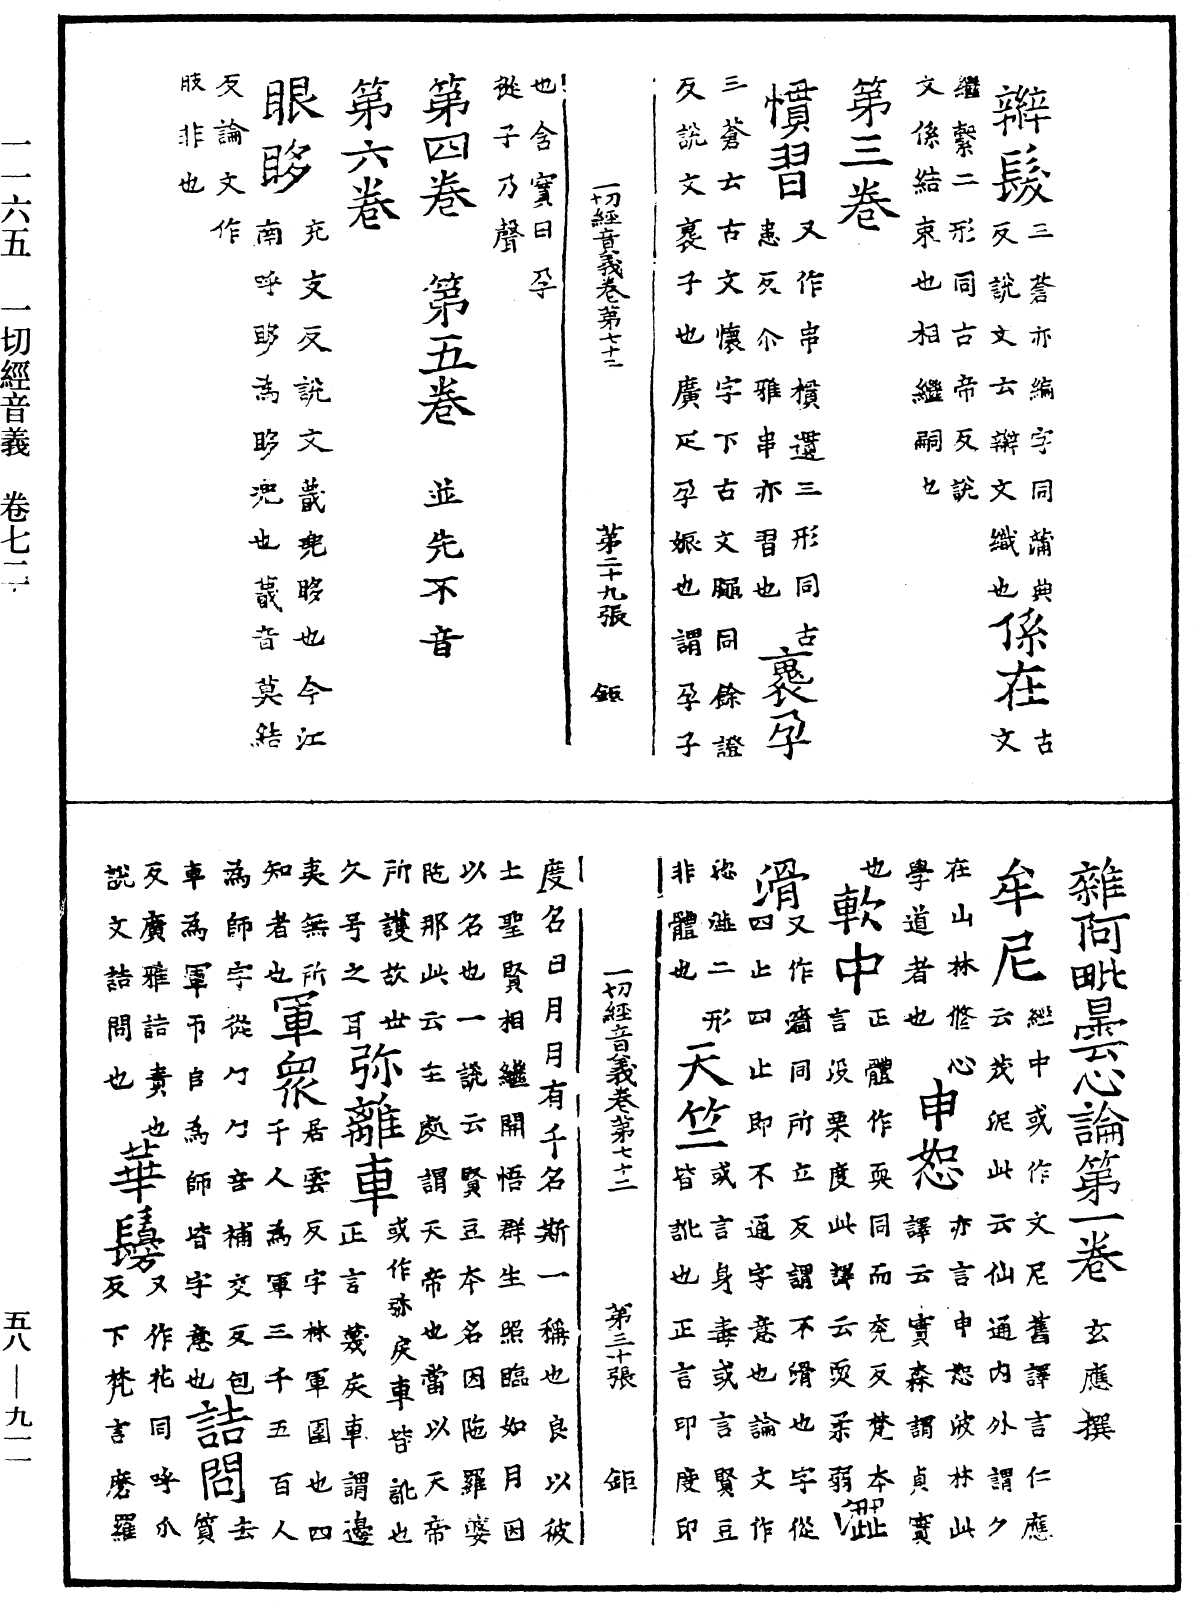 辮髮三蒼亦編字同蒲典
反說文云辮文織也係在古文
繼繫二形同古帝反說
文係結束也相繼嗣也
第三卷
慣習又作串樌遦三形同古
患反尒雅串亦習也褢孕
三蒼云古文懷字下古文𦝻同餘證
反說文褢子也廣疋孕娠也謂孕子
一切經音義卷第七十二 第二十九張 鉅
也含實曰孕
從子乃聲
第四卷 第五卷 並先不音
第六卷
眼眵充支反說文蔑兜眵也今江
南呼眵為眵兜也蔑音莫結
反論文作
肢非也
雜阿毗曇心論第一卷 玄應撰
牟尼經中或作文尼舊譯言仁應
云茂泥此云仙通內外謂久
在山林修心
學道者也申恕亦言申恕波林此
譯云實森謂貞實
也軟中正體作耎同而兗反梵本
言沒栗度此譯云耎柔弱
澀
滑又作𧛤同所立反謂不滑也字從
四止四止即不通字意也論文作
澁澁二形
非體也天竺或言身毒或言賢豆
皆訛也正言印度印
一切經音義卷第七十二 第三十張 鉅
度名曰月月有千名斯一稱也良以彼
土聖賢相繼開悟群生照臨如月因
以名也一說云賢豆本名因陁羅婆
陁那此云主處謂天帝也當以天帝
所護故世
久号之耳弥離車或作弥戾車皆訛也
正言蔑戾車謂邊
夷無所
知者也軍眾居雲反字林軍圍也四
千人為軍三千五百人
為師字從勹勹音補交反包
車為軍帀𠂤為師皆字意也詰問去質
反廣雅詰責也
說文詰問也華鬘又作花同呼瓜
反下梵言磨羅
一一六五 一切經音義 卷七二
五八—九一一